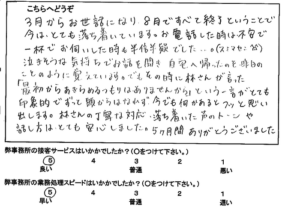 こちらへどうぞ
3月からお世話になり8月ですべて終るということで
今は、とても落ち着いています。お電話した時は不安で
一杯でお伺いした時も半信半疑でした…。(スミマセン)
泣きそうな気持ちでお話を聞き自宅へ帰ったのを昨日の
ことのように覚えています。でもその時に林さんが言った
「最初からあきらめるつもりはありませんから」という一言がとても
印象的でずっと頭からはなれず今でも何かあるとフッと思い
出します。林さんの丁寧な対応、落ち着いた声のトーンや
話し方はとても安心しました。5ヶ月間ありがとうございました
弊事務所の接客サービスはいかがでしたか?(○をつけて下さい。)
5 4 3 2 1
良い 普通 悪い
弊事務所の業務処理スピードはいかがでしたか?(○をつけて下さい。)
5 4 3 2 1
早い 普通 遅い